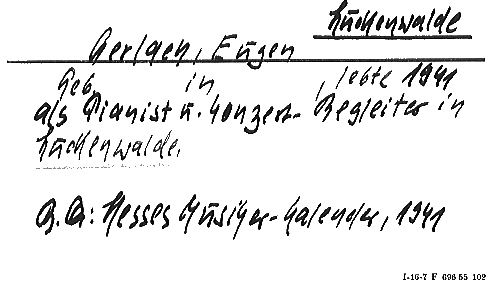 Luckenwalde
Gerlach, Eugen
Geb. in , lebte 1941
als Pianist u. Konzert-Begleiter in
Luckenwalde.
B.Q.: Hesses Musiker-Kalender, 1941
I-16-7 F 696 55 102